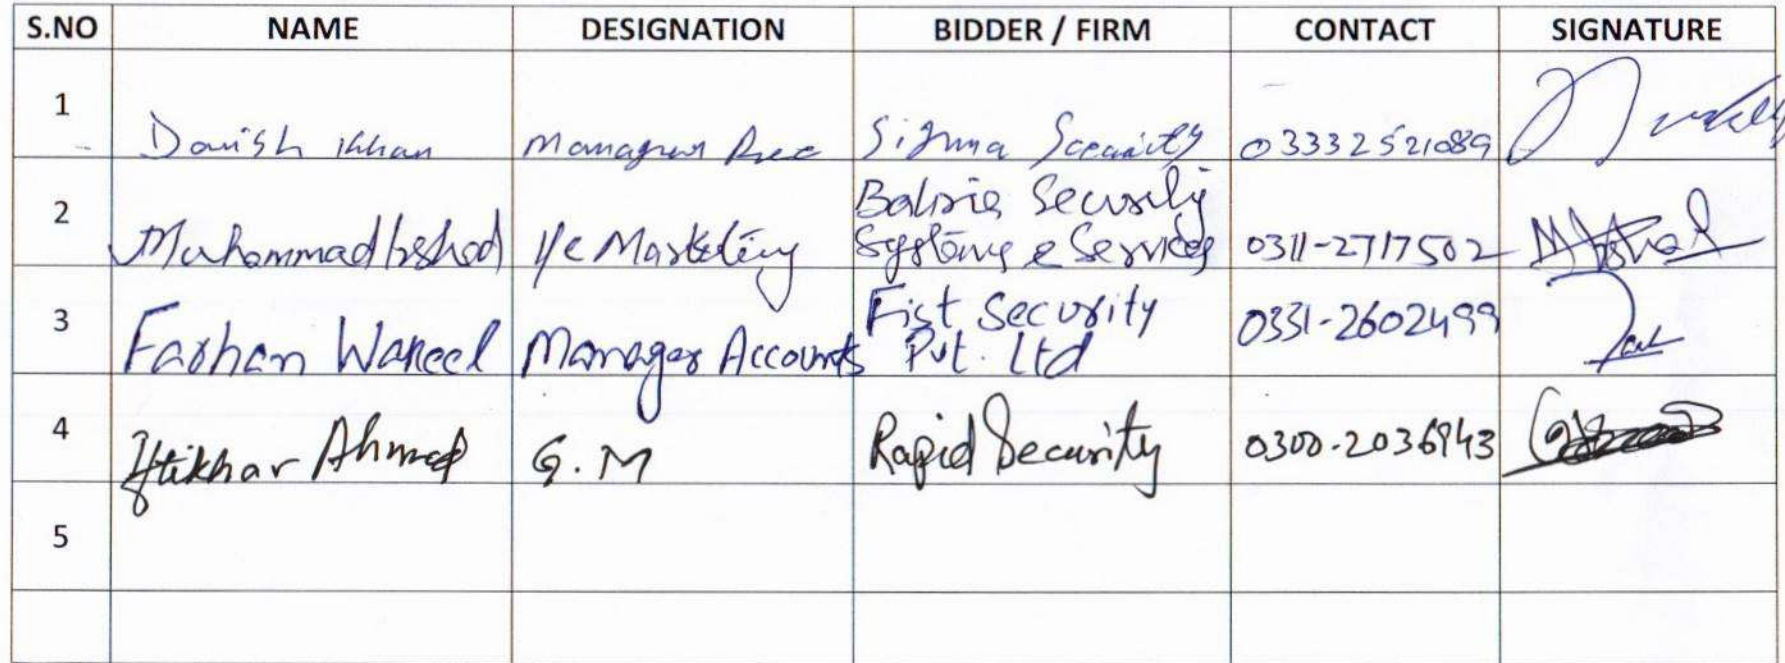 S.NO NAME DESIGNATION BIDDER / FIRM CONTACT SIGNATURE
1 Danish Khan Manager Sigma Security 03332521089
2 Muhammad Irshad I/c Marketing Bahria Security
Systems & Services 0311-2717502
3 Farhan Wakeel Manager Accounts Fist Security
Pvt. Ltd 0331-2602499
4 Iftikhar Ahmed G.M Rapid Security 0300-2036943
5